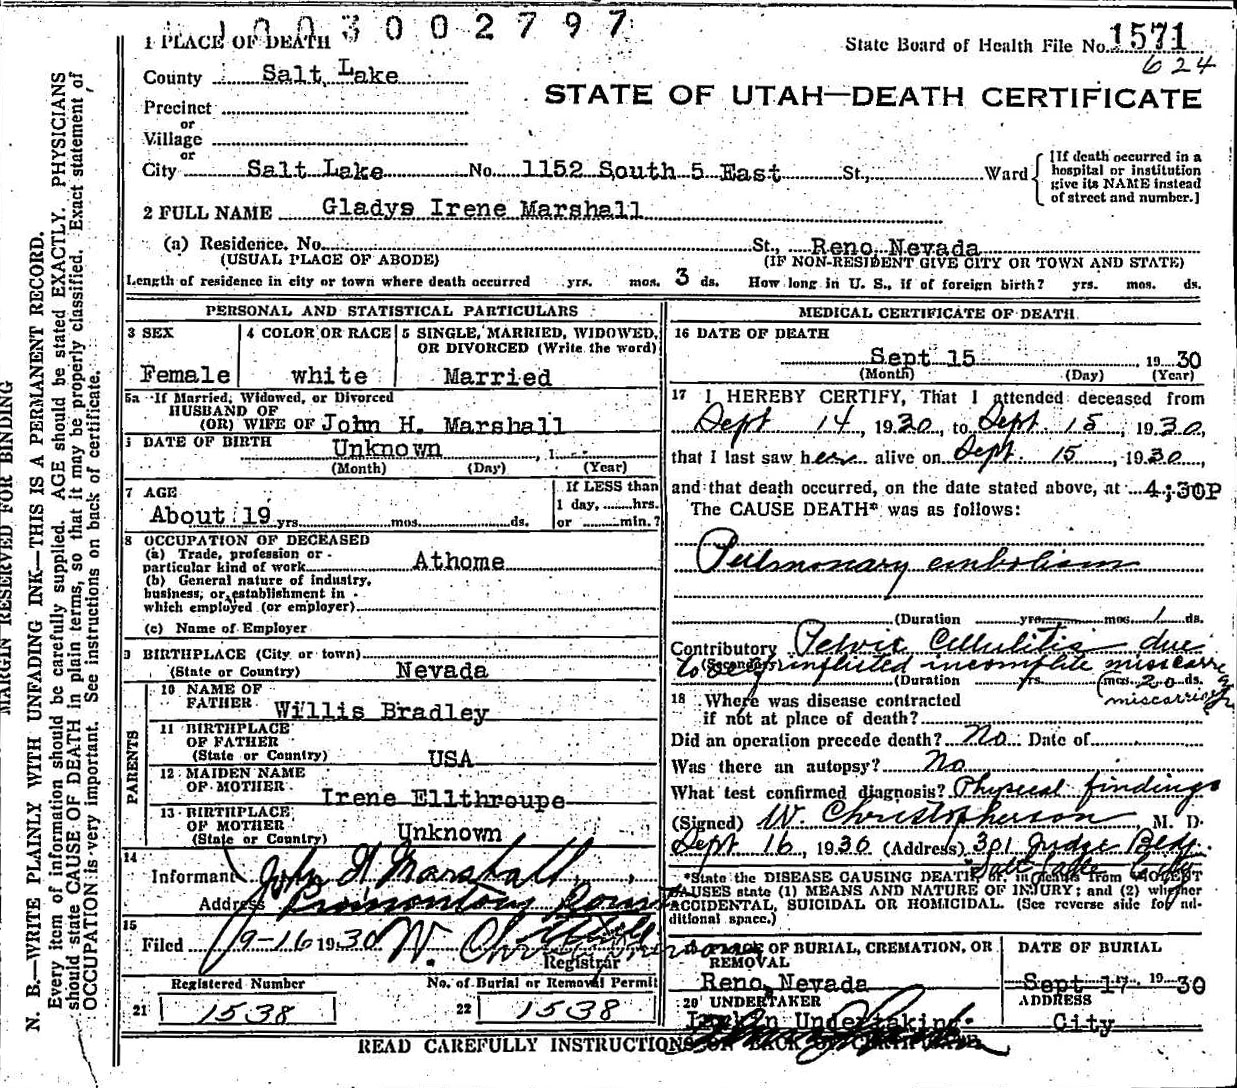 1003002797
1 PLACE OF DEATH
State Board of Health File No. 1571
624
County Salt Lake
STATE OF UTAH—DEATH CERTIFICATE
Precinct
or
Village
or
City Salt Lake No. 1152 South 5 East St., Ward
[If death occurred in a
hospital or institution
give its NAME instead
of street and number.]
2 FULL NAME Gladys Irene Marshall
(a) Residence. No. St., Reno, Nevada
(USUAL PLACE OF ABODE) (IF NON-RESIDENT GIVE CITY OR TOWN AND STATE)
Length of residence in city or town where death occurred yrs. mos. 3 ds. How long in U. S., if of foreign birth? yrs. mos. ds.
PERSONAL AND STATISTICAL PARTICULARS
3 SEX
Female
4 COLOR OR RACE
white
5 SINGLE, MARRIED, WIDOWED,
OR DIVORCED (Write the word)
Married
5a If Married, Widowed, or Divorced
HUSBAND OF
(OR) WIFE OF John H. Marshall
DATE OF BIRTH
Unknown , 1
(Month) (Day) (Year)
7 AGE
About 19 yrs. mos. ds.
If LESS than
1 day, hrs.
or min.?
8 OCCUPATION OF DECEASED
(a) Trade, profession or
particular kind of work Athome
(b) General nature of industry,
business, or establishment in
which employed (or employer)
(c) Name of Employer
9 BIRTHPLACE (City or town)
(State or Country) Nevada
PARENTS
10 NAME OF
FATHER Willis Bradley
11 BIRTHPLACE
OF FATHER
(State or Country) USA
12 MAIDEN NAME
OF MOTHER Irene Ellthroupe
13 BIRTHPLACE
OF MOTHER
(State or Country) Unknown
14
Informant John H Marshall
Address Promontory Point
15
Filed 9-16 1930 W. Christopherson
Registrar
Registered Number No. of Burial or Removal Permit
21 1538 22 1538
MEDICAL CERTIFICATE OF DEATH
16 DATE OF DEATH
Sept 15 1930
(Month) (Day) (Year)
17 I HEREBY CERTIFY, That I attended deceased from
Sept 14, 1930, to Sept. 15, 1930,
that I last saw her alive on Sept. 15, 1930,
and that death occurred, on the date stated above, at 4:30P
The CAUSE DEATH* was as follows:
Pulmonary embolism
(Duration yrs. mos. 1 ds.
Contributory Pelvic Cellulitis due
(Secondary) to self inflisted incomplite miscarry
(Duration yrs. mos. 20 ds.
miscarriage
18 Where was disease contracted
if not at place of death?
Did an operation precede death? No Date of
Was there an autopsy? No
What test confirmed diagnosis? Physical findings
(Signed) W. Christopherson M. D.
Sept 16, 1930 (Address) 301 Judge Bldg.
Salt Lake
*State the DISEASE CAUSING DEATH, or, in deaths from VIOLENT
CAUSES state (1) MEANS AND NATURE OF INJURY; and (2) whether
ACCIDENTAL, SUICIDAL OR HOMICIDAL. (See reverse side for ad-
ditional space.)
19 PLACE OF BURIAL, CREMATION, OR
REMOVAL
Reno, Nevada
DATE OF BURIAL
Sept 17 1930
20 UNDERTAKER
Larkin Undertaking
ADDRESS
City
READ CAREFULLY INSTRUCTIONS ON BACK OF CERTIFICATE.
MARGIN RESERVED FOR BINDING
N. B.—WRITE PLAINLY WITH UNFADING INK—THIS IS A PERMANENT RECORD.
Every item of information should be carefully supplied. AGE should be stated EXACTLY. PHYSICIANS
should state CAUSE OF DEATH in plain terms, so that it may be properly classified. Exact statement of
OCCUPATION is very important. See instructions on back of certificate.